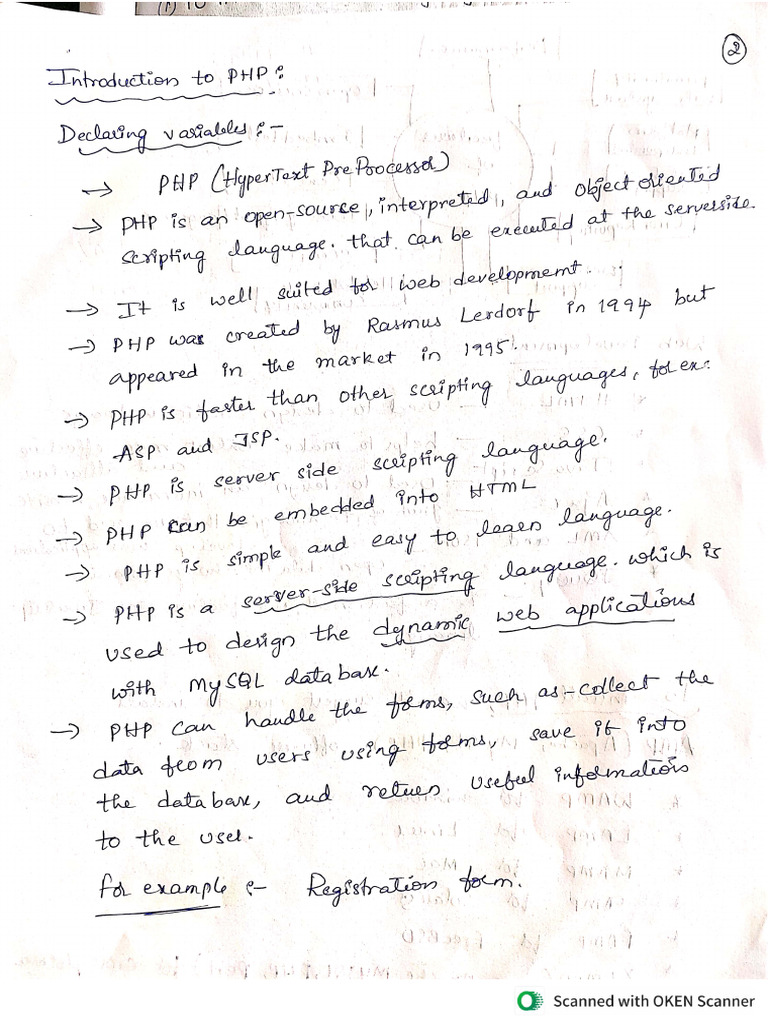 2
Introduction to PHP:
Declaring variables:-
→ PHP (HyperText PreProcessor)
→ PHP is an open-source, interpreted, and object oriented
scripting language. that can be executed at the serverside.
→ It is well suited for web development.
→ PHP was created by Rasmus Lerdorf in 1994 but
appeared in the market in 1995.
→ PHP is faster than other scripting languages, for ex:
ASP and JSP.
→ PHP is server side scripting language.
→ PHP can be embedded into HTML
→ PHP is simple and easy to learn language.
→ PHP is a server-side scripting language. which is
used to design the dynamic web applications
with MySQL database.
→ PHP can handle the forms, such as-collect the
data from users using forms, save it into
the database, and return useful information
to the user.
for example :- Registration form.
Scanned with OKEN Scanner